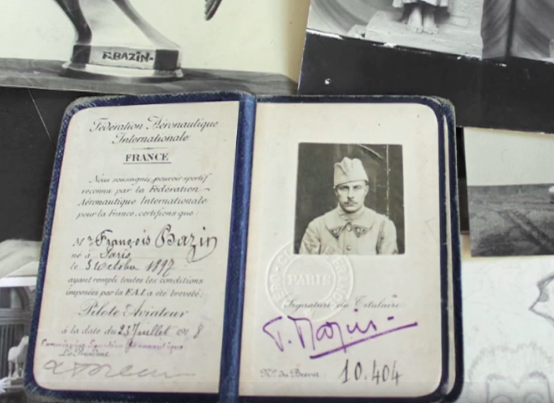 F. BAZIN
Fédération Aéronautique
Internationale
FRANCE
Nous soussignés, pouvoir sportif
reconnu par la Fédération
Aéronautique Internationale
pour la France, certifions que
Mr François Bazin
né à Paris
le 3 Octobre 1897
ayant rempli toutes les conditions
imposées par la F.A.I. a été breveté:
Pilote Aviateur
à la date du 23 Juillet 8
Aéronautique
Le Président
PARIS
Signature du Titulaire
F. Bazin
No. du Brevet 10.404